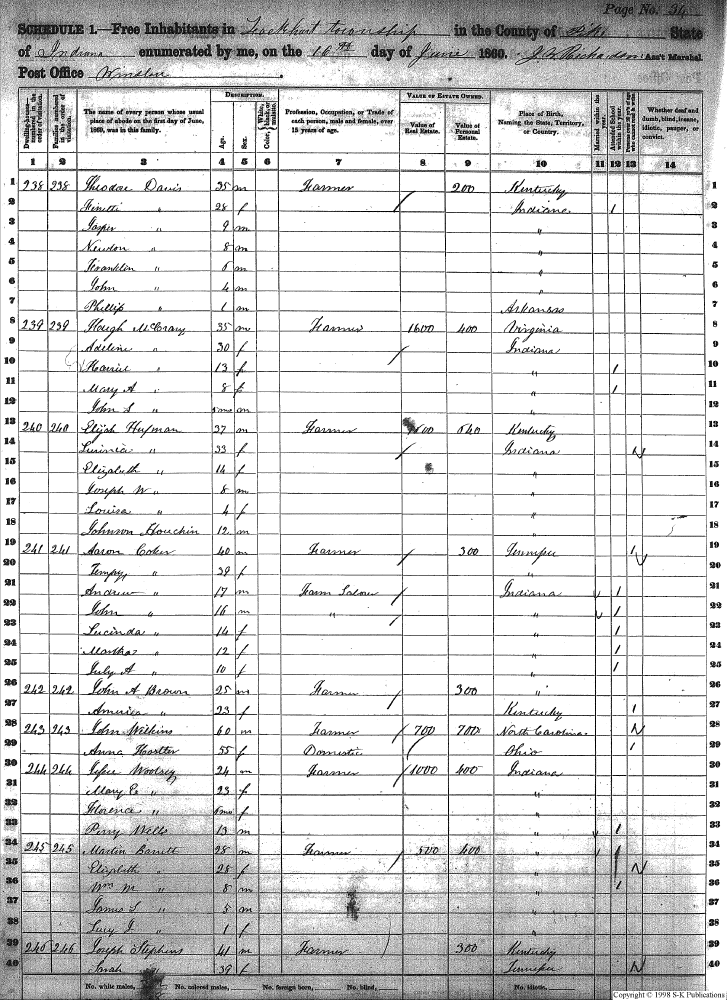 Page No. 34
SCHEDULE 1.—Free Inhabitants in Lockhart township in the County of Pike State
of Indiana enumerated by me, on the 16th day of June 1860. Ass't Marshal.
Post Office Winslow.
DESCRIPTION. VALUE OF ESTATE OWNED.
Dwelling-houses—numbered in the order of visitation. Families numbered in the order of visitation. The name of every person whose usual place of abode on the first day of June, 1860, was in this family. Age. Sex. Color, White, black, or mulatto. Profession, Occupation, or Trade of each person, male and female, over 15 years of age. Value of Real Estate. Value of Personal Estate. Place of Birth, Naming the State, Territory, or Country. Married within the year. Attended School within the year. Persons over 20 years of age who cannot read & write. Whether deaf and dumb, blind, insane, idiotic, pauper, or convict.
1 2 3 4 5 6 7 8 9 10 11 12 13 14
1 238 238 Theodore Davis 35 m Farmer 200 Kentucky 1
2 " 28 f Indiana 1 2
3 Jasper " 9 m " 3
4 Newton " 8 m " 4
5 Franklin " 6 m " 5
6 John " 4 m " 6
7 Phillip " 1 m Arkansas 7
8 239 239 Hough McCrary 35 m Farmer 1600 400 Virginia 8
9 Adeline " 30 f Indiana 9
10 Harriet " 13 f " 1 10
11 Mary A " 8 f " 1 11
12 John S " 5 mo m " 12
13 240 240 Elijah Hufman 37 m Farmer 640 Kentucky 13
14 " 33 f Indiana 14
15 Elizabeth " 14 f " 15
16 Joseph W " 8 m " 16
17 Louisa " 4 f " 17
18 Johnson Houchin 12 m " 18
19 241 241 Aaron Coker 40 m Farmer 300 Tennessee 1 19
20 Tempy " 39 f " 20
21 Andrew " 17 m Farm Labour Indiana 1 21
22 John " 16 m " " 1 22
23 Lucinda " 14 f " 1 23
24 Martha " 12 f " 1 24
25 July A " 10 f " 1 25
26 242 242 John A Brown 25 m Farmer 300 " 26
27 America " 23 f Kentucky 1 27
28 243 243 John Wilkins 60 m Farmer 700 700 North Carolina 28
29 Anna 55 f Domestic Ohio 1 29
30 244 244 Woolsey 24 m Farmer 1000 400 Indiana 30
31 Mary E " 23 f " 31
32 Florence " 6 mo f " 32
33 Perry Wells 13 m " 1 33
34 245 245 Martin Barrett 28 m Farmer 500 400 " 1 34
35 Elizabeth " 28 f " 35
36 Wm M " 8 m " 1 36
37 James S " 5 m " 37
38 Lucy J " 1 f " 38
39 246 246 Joseph Stephens 41 m Farmer 300 Kentucky 39
40 Sarah " 39 f Tennessee 40
No. white males, No. colored males, No. foreign born, No. blind, No. idiotic,
Copyright © 1998 S-K Publications